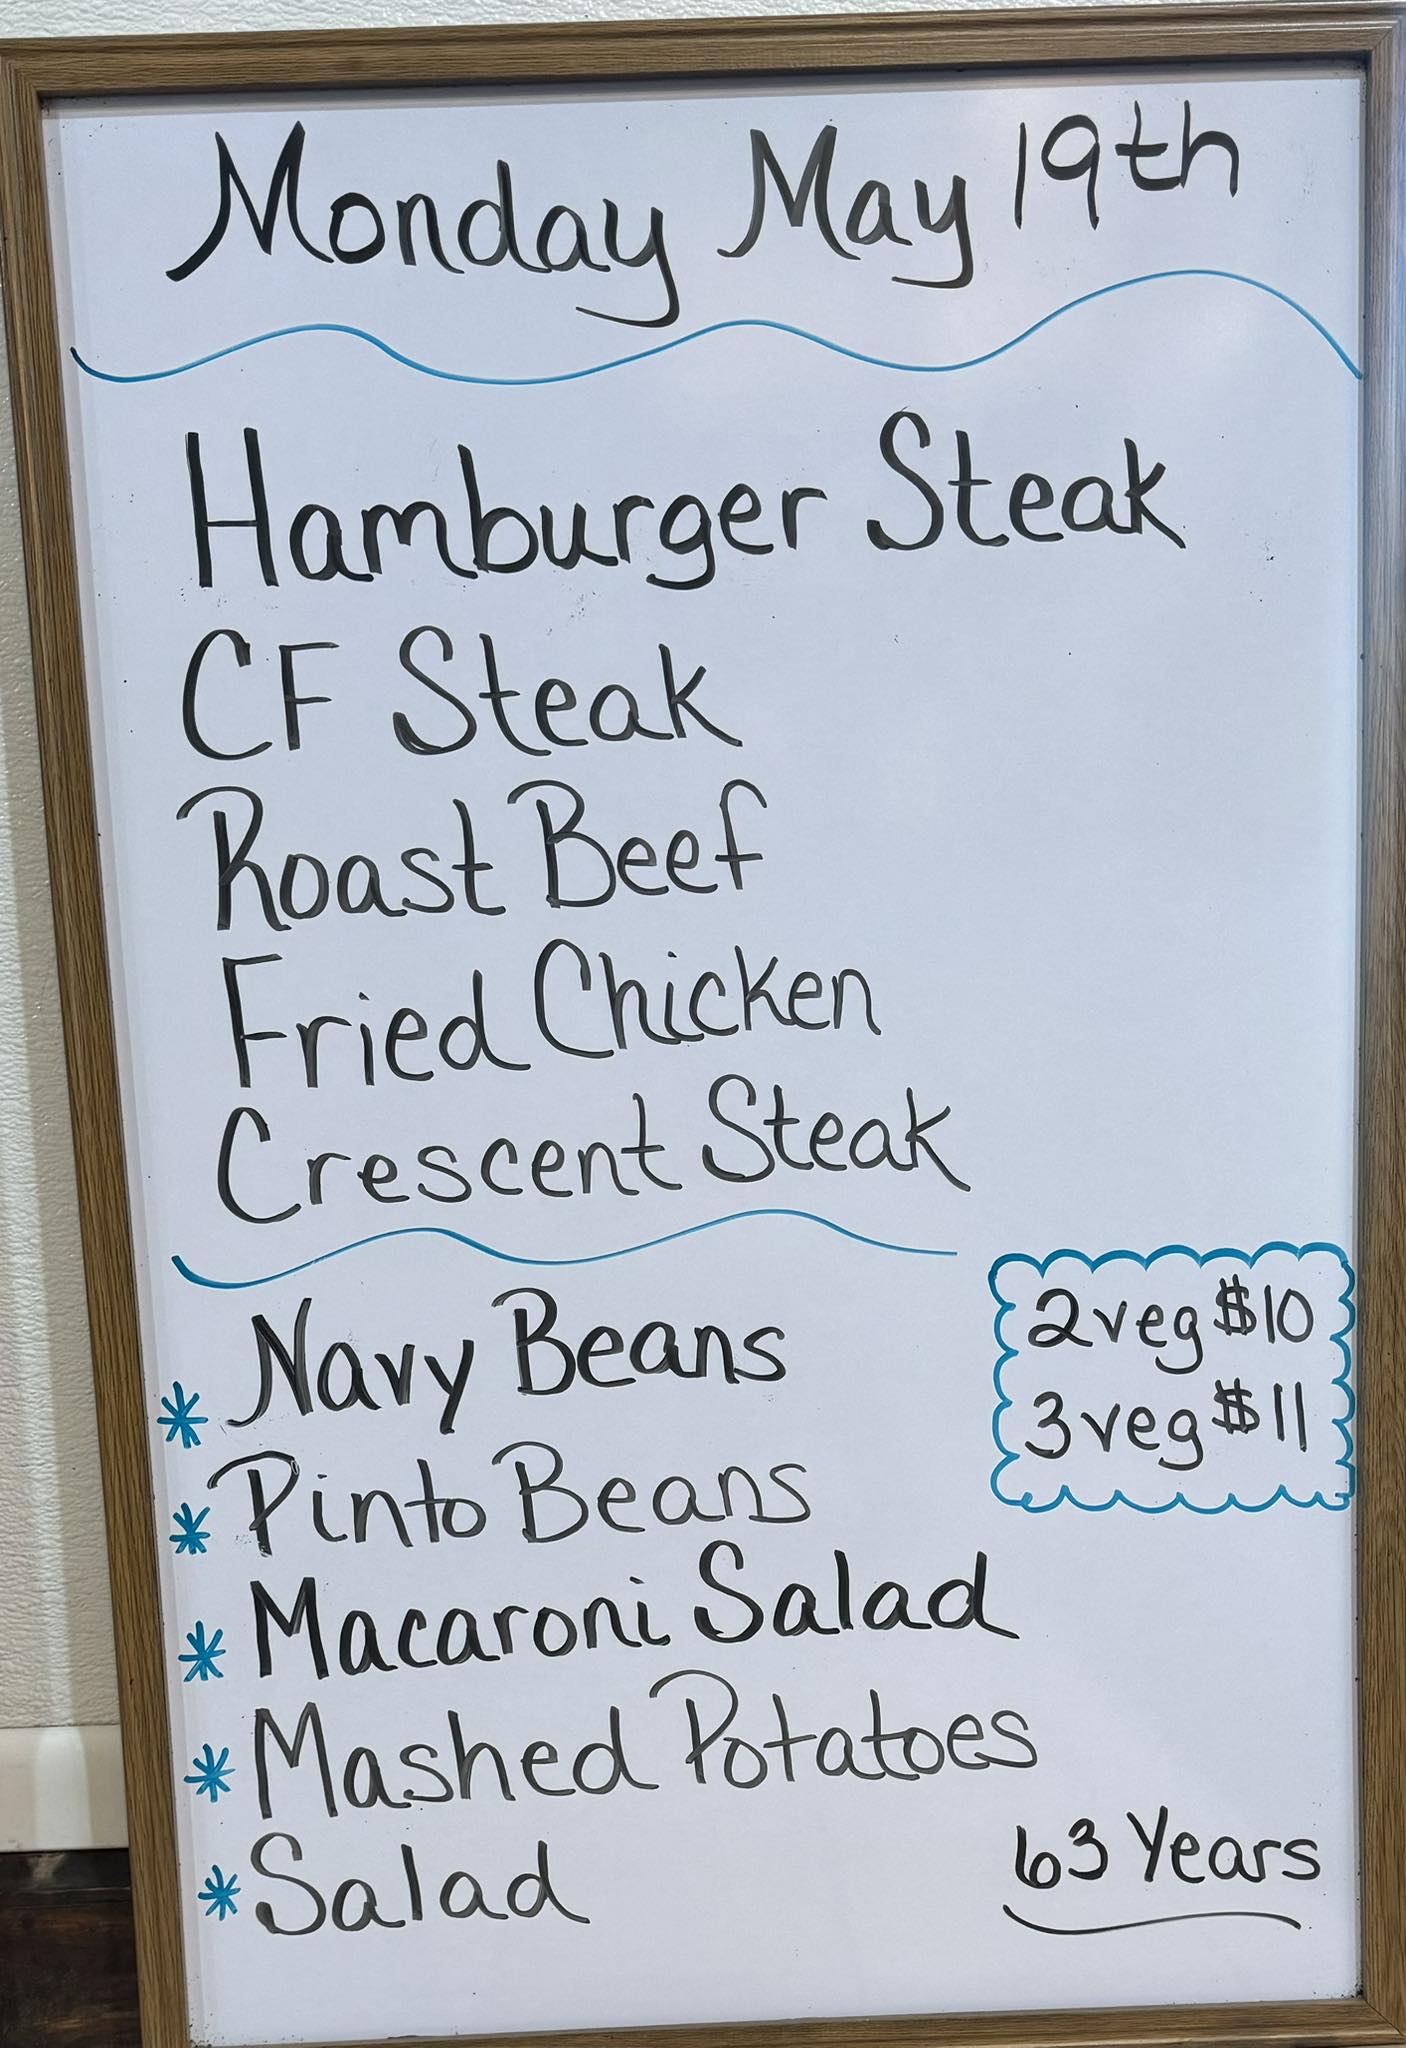 Monday May 19th
Hamburger Steak
CF Steak
Roast Beef
Fried Chicken
Crescent Steak
* Navy Beans
* Pinto Beans
* Macaroni Salad
* Mashed Potatoes
* Salad
2 veg $10
3 veg $11
63 Years